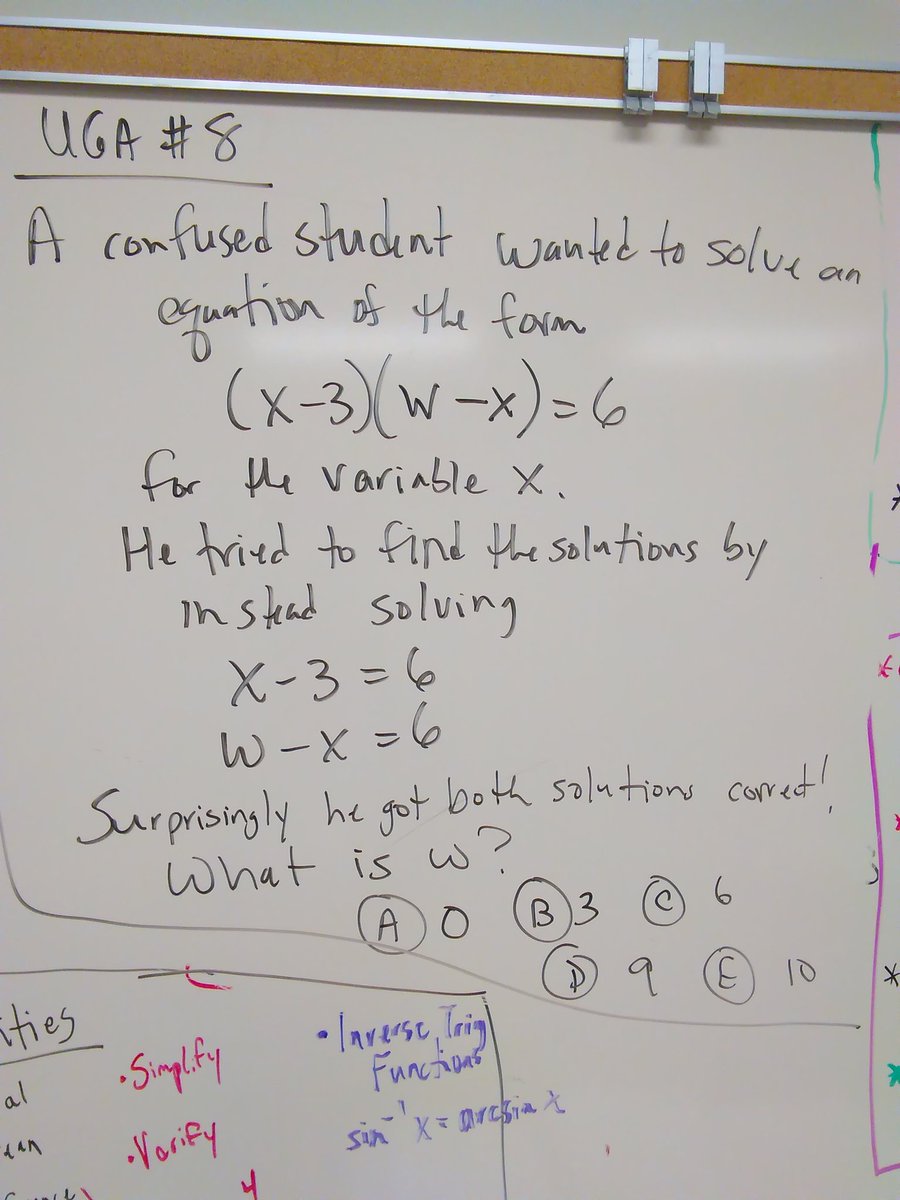 UGA #8
A confused student wanted to solve an
equation of the form
(x-3)(w-x)=6
for the variable x.
He tried to find the solutions by
instead solving
x-3=6
w-x=6
Surprisingly he got both solutions correct!
What is w?
(A) 0 (B) 3 (C) 6
(D) 9 (E) 10
• Simplify
• Varify
• Inverse Trig
Functions
sin⁻¹x = arcsin x